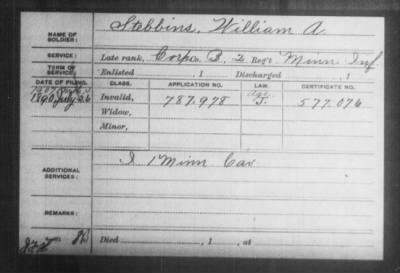 NAME OF SOLDIER: Stebbins, William A.
SERVICE: Late rank, Corp Co. B, 2 Reg't Minn Inf
TERM OF SERVICE: Enlisted , 1 Discharged , 1
DATE OF FILING. CLASS. APPLICATION NO. LAW. CERTIFICATE NO.
1890 July 26 Invalid, 787.978 J. 577.076
Widow,
Minor,
ADDITIONAL SERVICES: I 1 Minn Cav
REMARKS:
Died , 1 , at